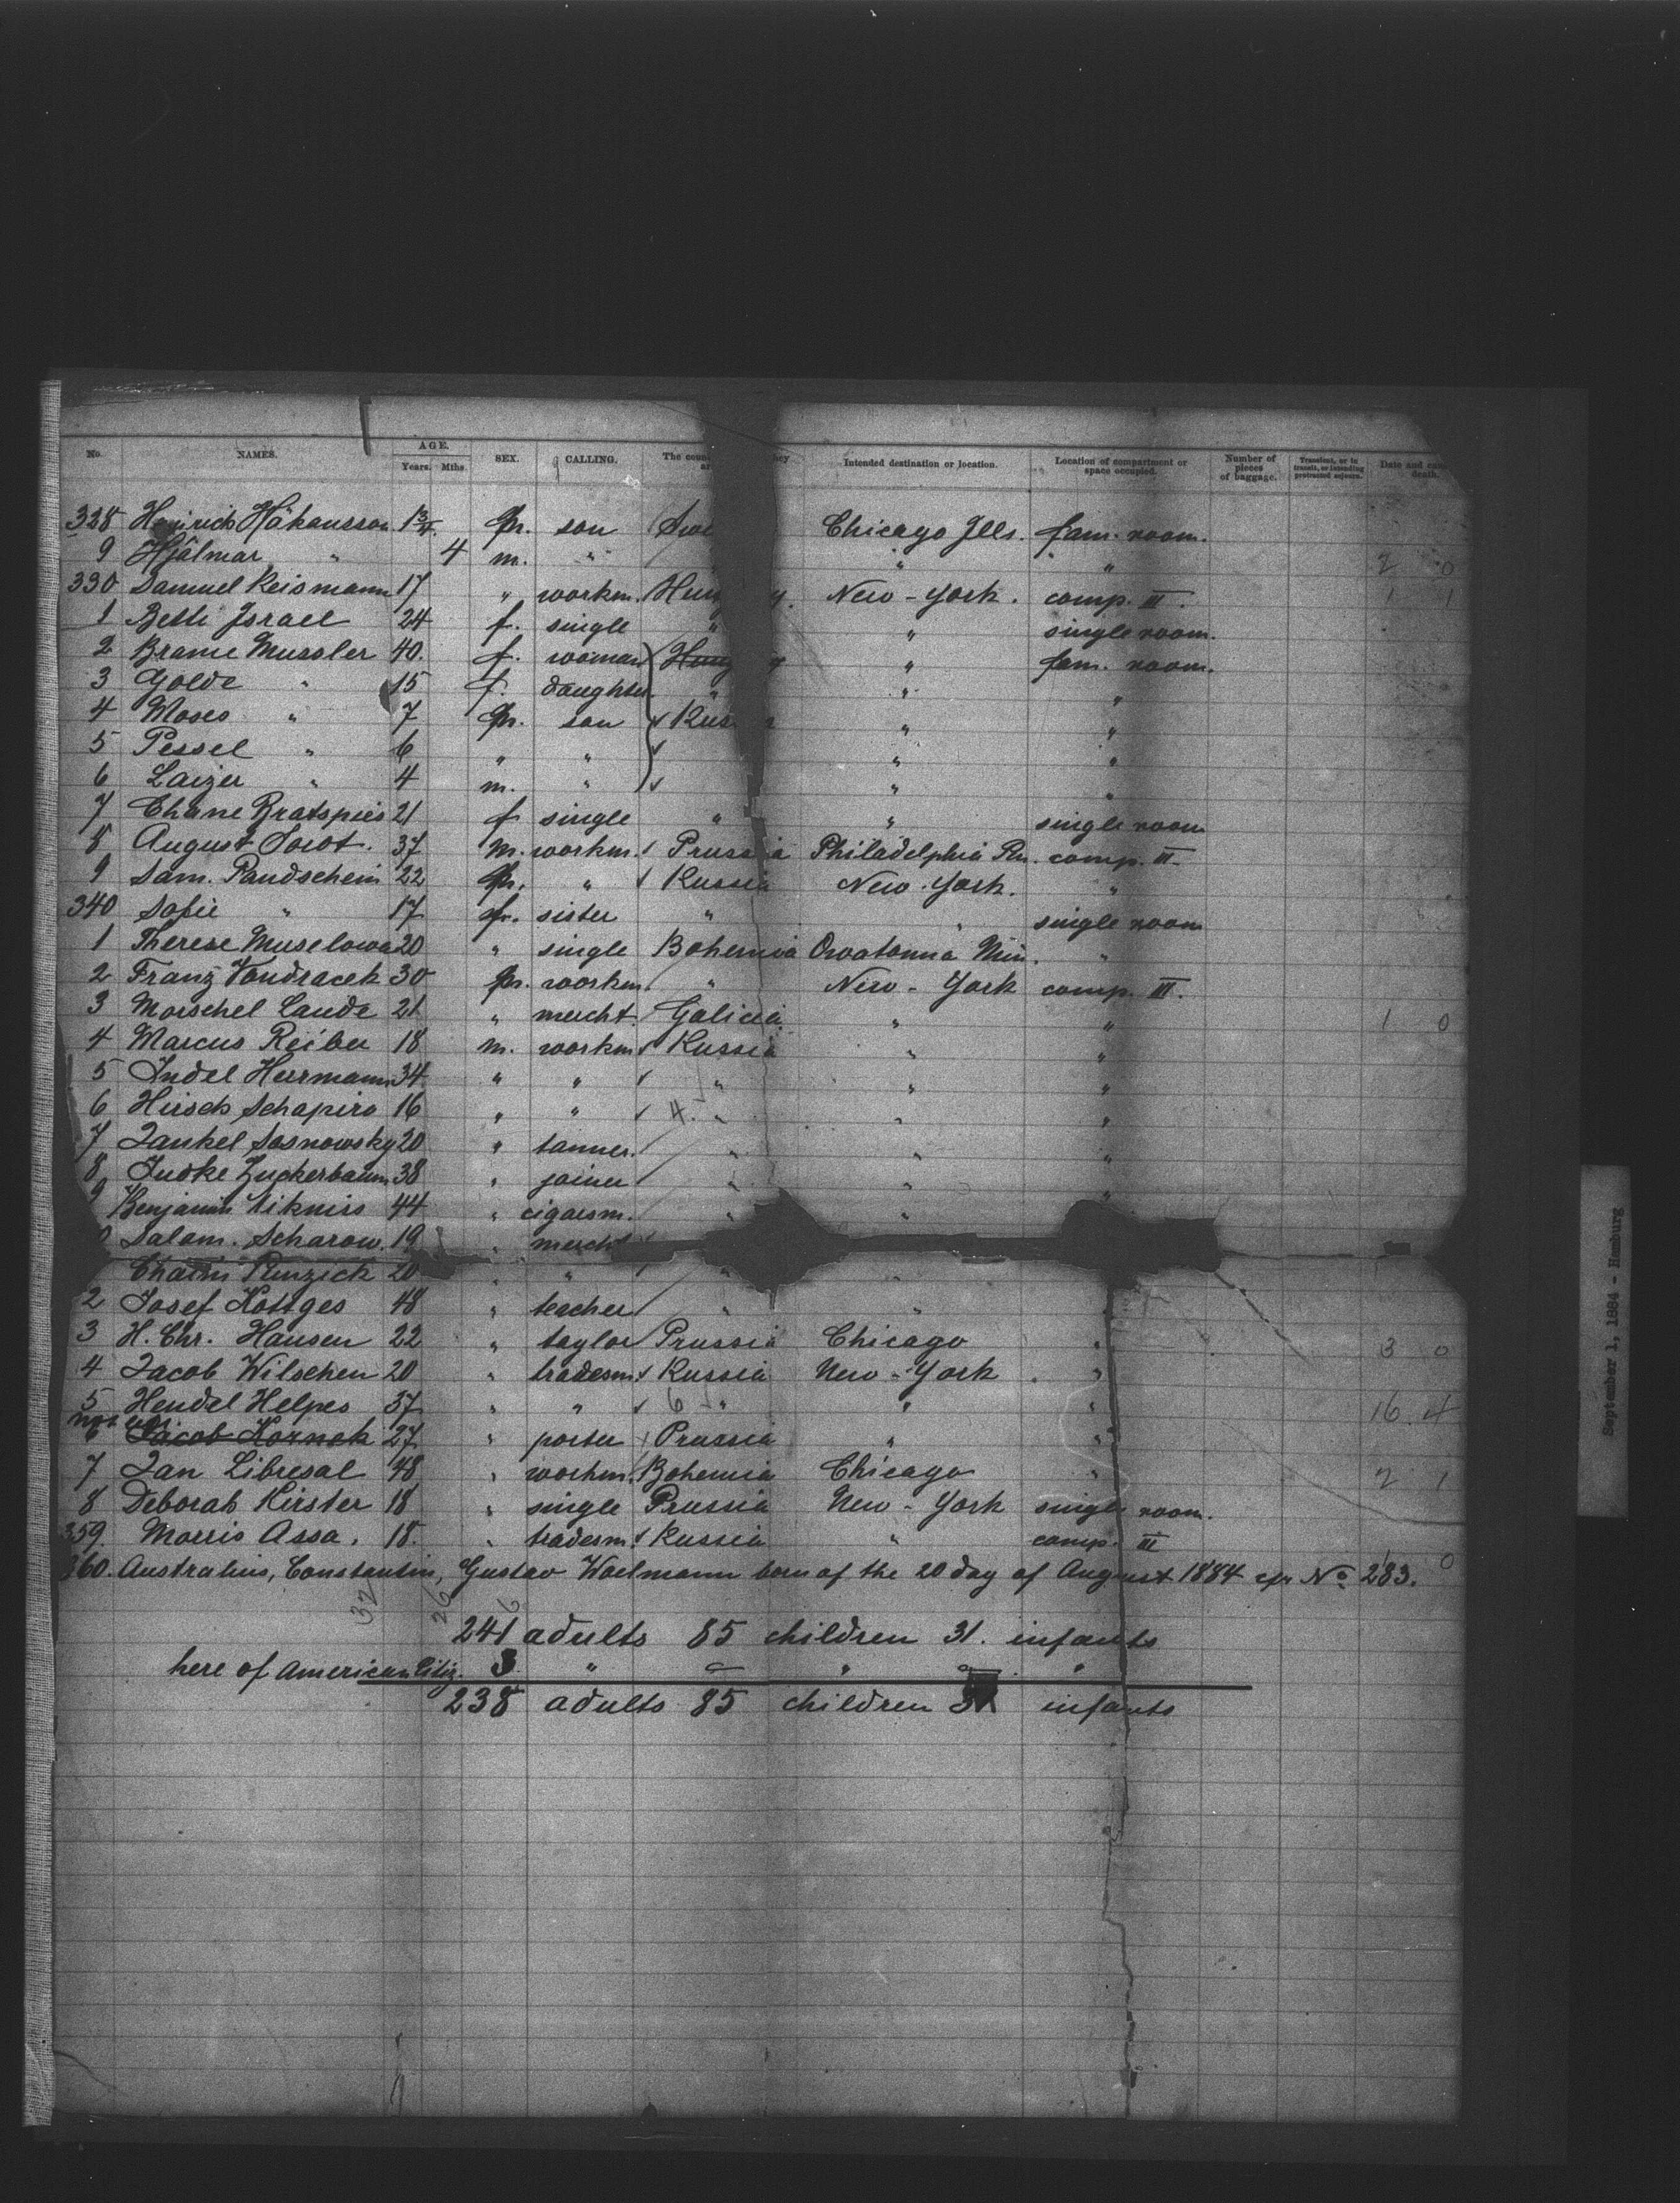 No. NAMES. AGE. Years. Mths. SEX. CALLING. The coun Intended destination or location. Location of compartment or space occupied. Number of pieces of baggage. Transient, or in transit, or intending protracted sojourn. Date and cau death.
328 Heinrich Håkansson 1 3/4 m. son Swe Chicago Ills. fam. room.
9 Hjalmar " 4 m. " " " 2 0
330 Samuel Reismann 17 " workm. Hung y. New-York. comp. III. 1 1
1 Betti Israel 24 f. single " " single room.
2 Brane Mussler 40. f. woman Hung y " fam. room.
3 Golde " 15 f. daughter " " "
4 Moses " 7 m. son Rus " "
5 Pessel " 6 " " " "
6 Laizer " 4 m. " " "
7 Chane Bratspies 21 f single " " single room
8 August Soiot. 37 m. workm. Prussia Philadelphia Pen. comp. III.
9 Sam. Pandschein 22 m. " Russia New-York. "
340 Sofie " 17 f. sister " " single room
1 Therese Muselowa 20 " single Bohemia Owatonna Min. "
2 Franz Vondracek 30 m. workm. " New-York comp. III.
3 Morschel Laude 21 " mercht. Galicia " " 1 0
4 Marcus Reiber 18 m. workm Russia " "
5 Judel Herrmann 34 " " " " "
6 Hirsch Schapiro 16 " " 4. " " "
7 Jankel Sosnowsky 20 " tanner. " " "
8 Judke Zuckerbaum 38 " joiner " " "
9 Benjamin 44 " cigarsm. " "
0 Salam. Scharow. 19 " mercht
Chaim Runzick 20 " " " "
2 Josef Kottges 48 " teacher " " "
3 H. Chr. Hansen 22 " taylor Prussia Chicago " 3 0
4 Jacob Wilschen 20 " tradesm. Russia New-York. "
5 Hendel Helpes 37 " " 6 " " " 16. 4
6 Jacob Kornek 27 " porter Prussia " "
7 Jan Libresal 48 " workm. Bohemia Chicago " 2 1
8 Deborah Kirster 18 " single Prussia New-York single room.
359. Morris Assa. 18. " tradesm. Russia " comp. III
360. Australius, Constantin, Gustav Woelmann born of the 20 day of August 1884 cfr No. 283. 0
32 26 6
241 adults 85 children 31. infants
here of American Citiz. 3. " - " - "
238 adults 85 children 31 infants
September 1, 1884 - Hamburg